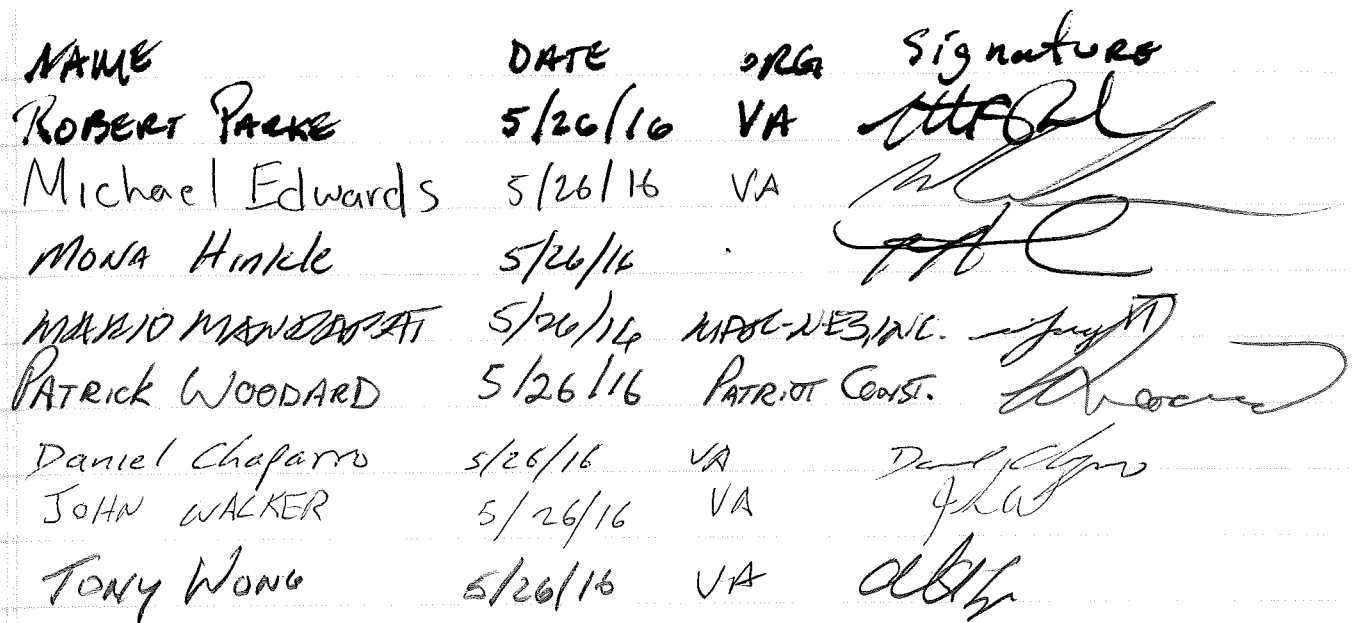 NAME DATE ORG Signature
ROBERT PARKE 5/26/16 VA
Michael Edwards 5/26/16 VA
MONA Hinkle 5/26/16
MARIO 5/26/16 INC.
PATRICK WOODARD 5/26/16 PATRIOT CONST.
Daniel Chaparro 5/26/16 VA
JOHN WALKER 5/26/16 VA
TONY WONG 5/26/16 VA